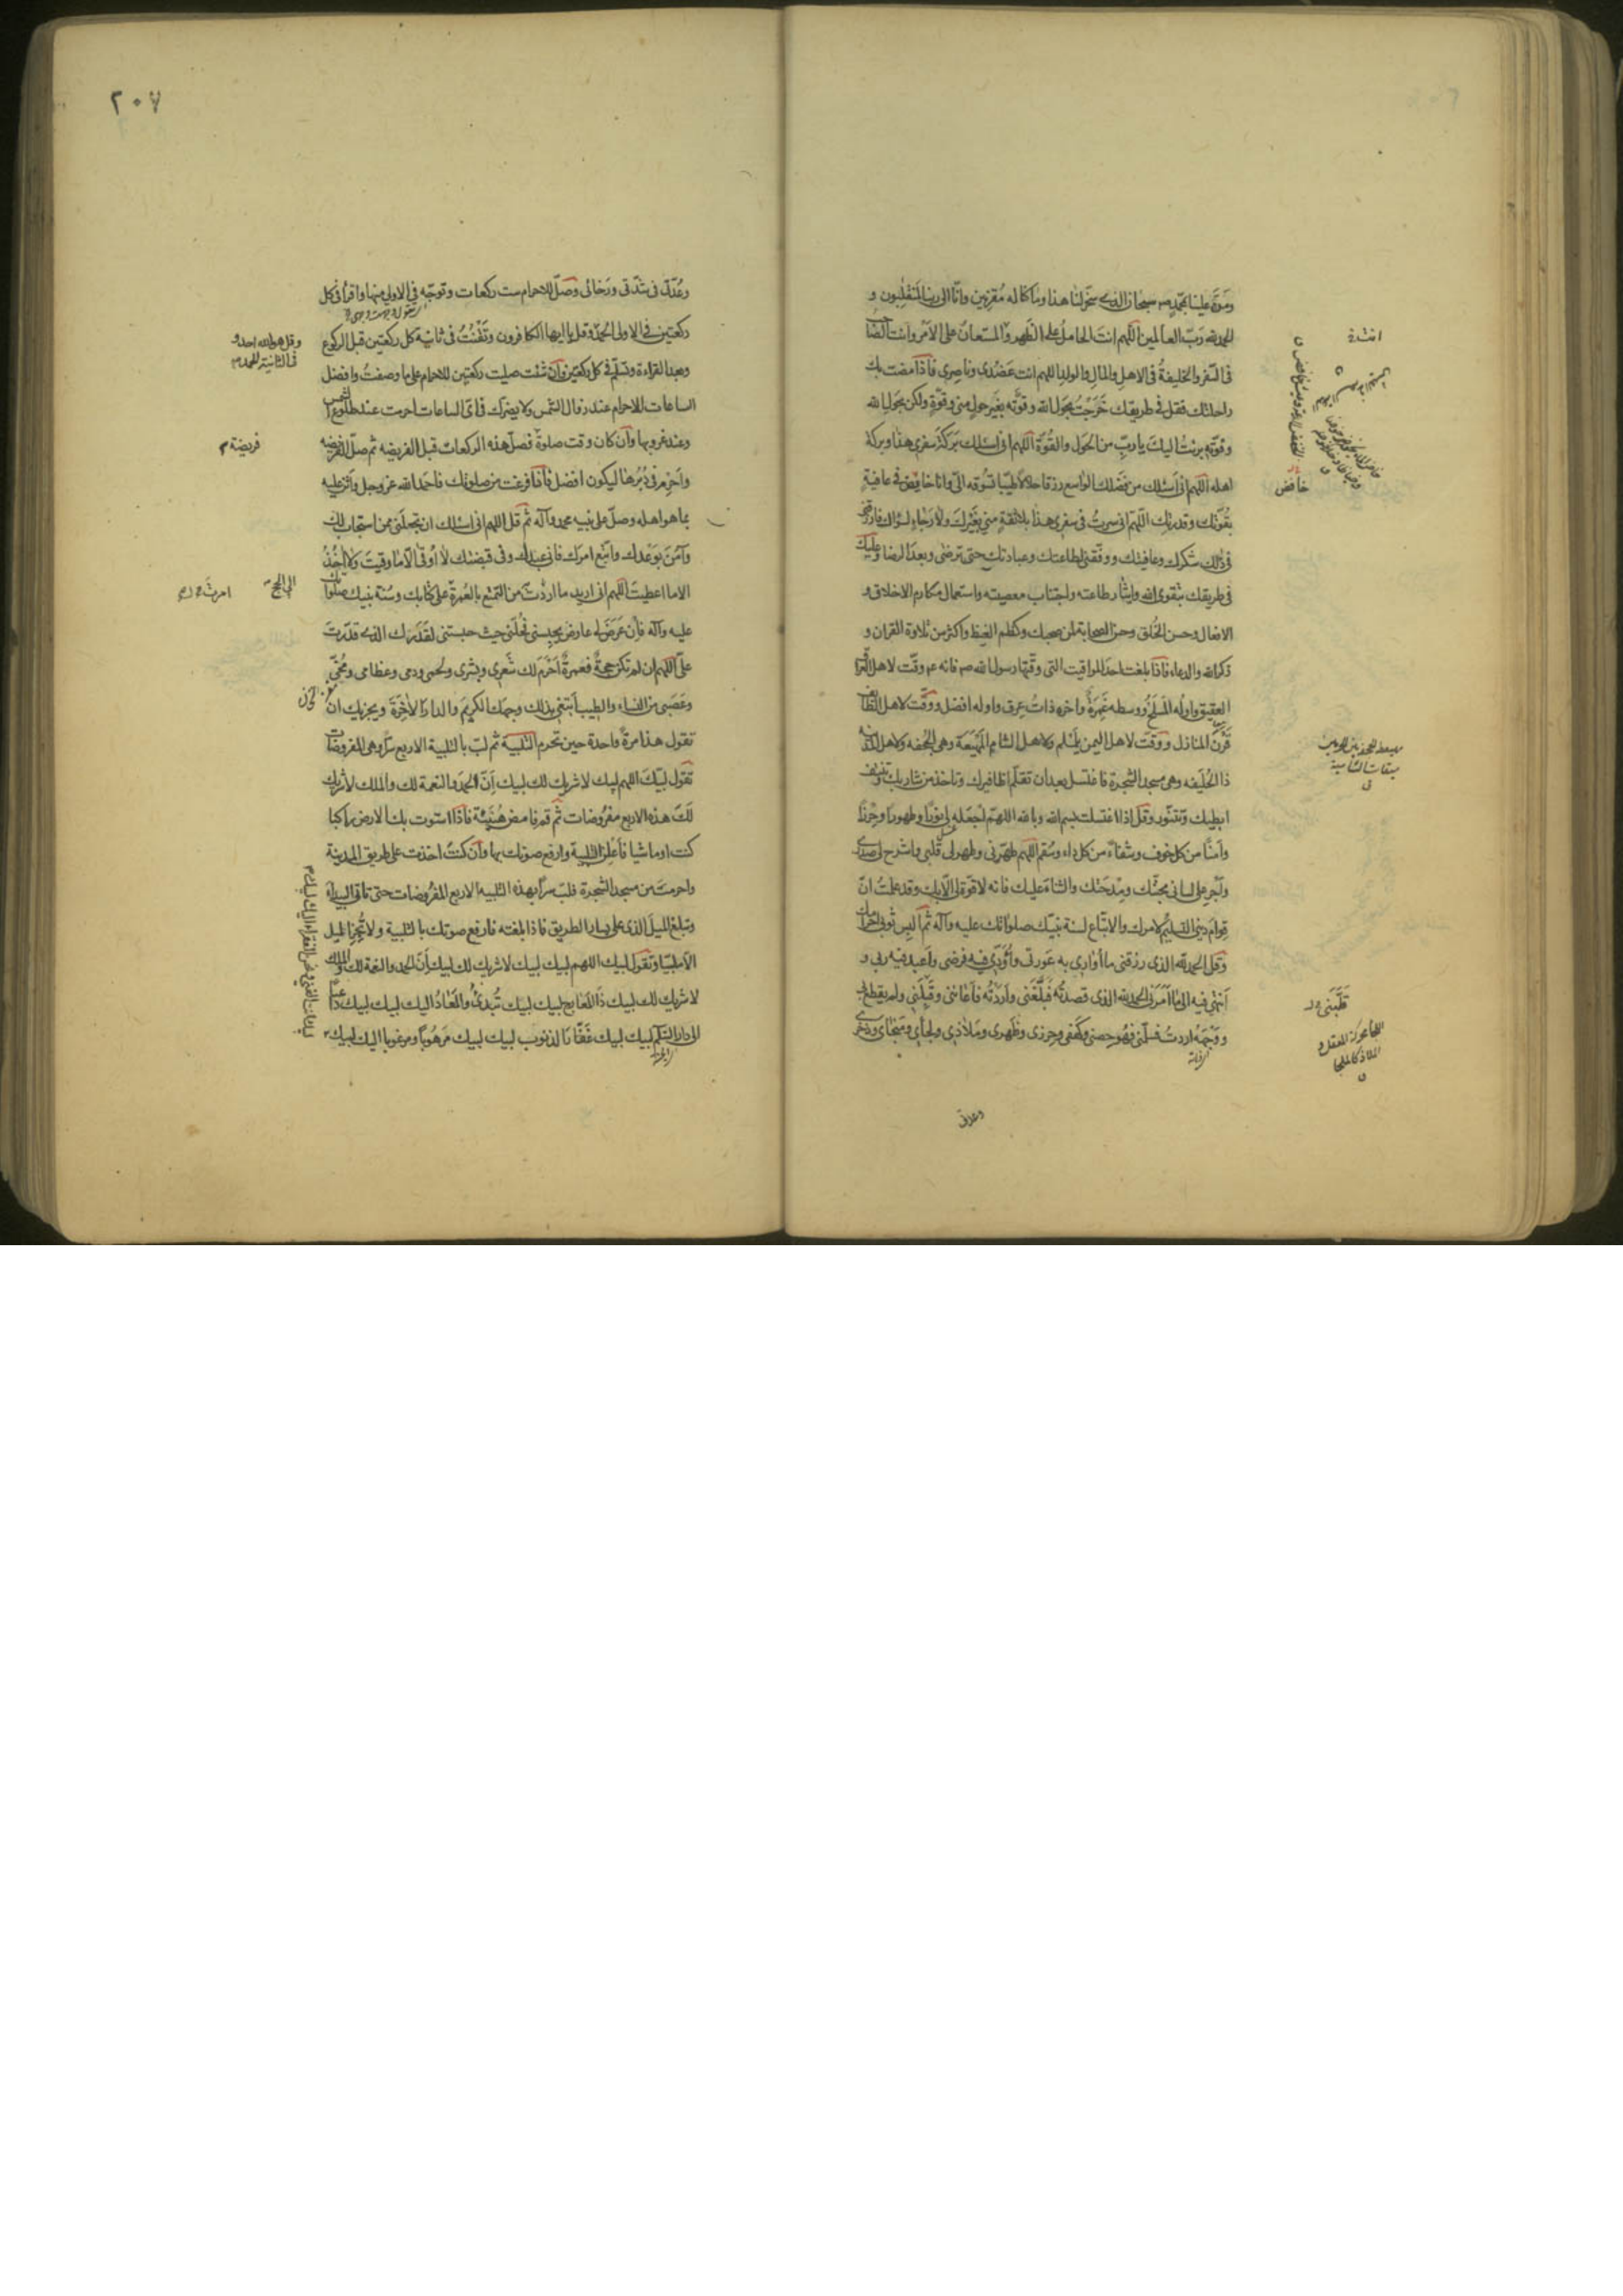 ومَنَّ علينا بمحمّد ص سبحان الذي سخّر لنا هذا وما كنّا له مُقرنين وانّا الى ربنا لمنقلبون و
الحمد لله رَبّ العالمين اللّهم انتَ الحاملُ على الظهر والمستعانُ على الأمر وانت الصّاحب
فى السّفر والخليفةُ فى الاهل والمال والولد اللهم انت عَضُدى وناصِرى فاذا مضت بك
راحلتك فقل فى طريقك خَرَجْتُ بحَول الله وقوّته بغَير حولٍ منى وقوّةٍ ولكن بحَول الله
وقوّته برئتُ اليكَ ياربّ من الحَول والقُوّة اللّهم انى اسئلك بَركةَ سفرى هذا وبركةَ
اهله اللّهم انى أسئلك من فضلك الواسع رزقا حلالاً طيّبا تسُوقه الىّ وانا خافض فى عافيةٍ
بقُوّتك وقدرتك اللّهم انى سرتُ فى سفرى هذا بلا ثقةٍ مني بغَيْركَ ولا رَجاءٍ لسواك فارزقنى
فى ذلك شكرك وعافيتك ووفّقنى لطاعتك وعبادتك حتى ترضى وبعدَ الرضا وعليك
فى طريقك بتقوى الله وايثار طاعته واجتناب معصيته واستعمال مكارم الاخلاق و
الافعال وحسن الخُلق وحسن الصحابة لمن صحبك وكظم الغيظ واكثر من تلاوة القران و
ذكر الله والدعاء فاذا بلغت احدَ المواقيت التى وقّتها رسول الله ص فانه ع وقّت لاهل العراق
العقيق واوله المَسلَخ ووسطه غَمرَةُ واخره ذاتُ عِرق واوله افضل ووَقّت لاهل الطائف
قَرْنَ المنازل ووَقّت لاهل اليمن يَلَمْلَم ولاهل الشام المَهْيَعَة وهى الجحفه ولاهل المدينه
ذا الحُلَيفه وهى مسجد الشجرة فاغتسل بعد ان تقلّم اظافيرك وتاخذ من شاربك وتنتف
ابطيك وتتنوّر وقل اذا اغتسلت بسم الله وبالله اللهمّ اجْعَله لى نورًا وطهورًا وحِرْزًا
وأمنًا من كل خوف وشفاءً من كل داء وسُقم اللهم طهّرنى وطهر لى قلبى واشرح لى صدرى
وأجْرِ على لسانى محبّتك ومِدْحَتك والثناء عليك فانه لا قوّة لى الّا بك وقد علمتُ انّ
قِوامَ دينى التسليمُ لامرك والاتّباع لسنة نبيّك صلواتك عليه وآله ثمّ البس ثوبى احرامك
وقل الحمد لله الذى رزقنى ما أُوارى به عَورتى وأُؤدّى فيه فرضى وأعبد فيه ربى و
أنتهى فيه الى ما أمَرَنى الحمد لله الذى قصدتُه فَبَلَّغَنى وأرَدْتُه فأعاننى وقَبِلَنى ولم يقطع بى
ووَجْهَه اردتُ فسلّمنى فهُو حِصنى وكَهفى وحِرزى وظَهرى ومَلاذى ولَجأى ومَنجاىَ وذخرى
وعدتى
خافض
٢٠٧
وعُدّتى فى شدّتى ورَخائى وَصَلّ للاحرام ست ركعات وتوجّه فى الاولى منها واقرأ فى كل
ركعتين فى الاولى الحمدَ وقل يا ايها الكافرون وتَقْنُتُ فى ثانية كل ركعتين قبل الركوع
وبعد القراءة وتسلّم فى كل ركعتين وَان شئت صليت ركعتين للاحرام على ما وصفتُ وافضل
الساعات للاحرام عند زوال الشمس ولا يضرّك فى اىّ الساعات احرمت عند طلوع الشمس
وعند غروبها وَان كان وقت صلوة فصلّ هذه الركعات قبل الفريضه ثم صلّ الفريضه
وأحْرِم فى دُبُرها ليكون افضل فاذا فرغت من صلوتك فاحمد الله عز وجل وأثنِ عليه
بما هو اهله وصلّ على نبيه محمد وآله ثم قل اللهم انى اسئلك ان تجعلَنى ممن استجاب لك
وآمَنَ بوَعْدك واتّبع امرَك فانى عبدك وفى قبضتك لا أُوقَى الّا ما وقيتَ ولا آخُذُ
الا ما اعطيتَ اللّهم انى اريد ما اردتَ من التمتّع بالعُمرةِ على كتابك وسُنّة نبيك صلواتك
عليه وآله فإن عَرَضَ لى عارض يحبِسنى فحُلّنى حيث حبستنى لقَدَرك الذى قدّرتَ
علىّ اللّهم ان لم تكن حجةٌ فعُمرةٌ أحْرَمَ لك شَعرى وبشرى ولحمى ودمى وعظامى ومُخّى
وعَصَبى من النساء والطيب أبتغى بذلك وجهك الكريمَ والدارَ الآخِرَة ويجزيك ان
تقول هذا مرةً واحدة حين تحرم التلبية ثم لبّ بالتلبية الاربع سرًّا وهى المفروضات
تقول لبّيكَ اللهم لبيك لا شريك لك لبيك اِنّ الحمدَ والنعمة لك والملك لا شريك
لك هذه الاربع مفروضات ثم قم فامض هُنَيئةً فاذا استوت بك الارض راكبا
كنت او ماشيا فأعْلِن التلبية وارفع صوتك بها وَان كنتَ اخذت على طريق المدينة
واحرمتَ من مسجد الشجرة فلبّ سرًّا بهذه التلبيه الاربع المفروضات حتى تأتى البيداء
وتبلغ الميلَ الذى على يسار الطريق فاذا بلغته فارفع صوتك بالتلبية ولا تَجُزِ الميل
الّا ملبّيًا وتقول لبيك اللهم لبيك لبيك لا شريك لك لبيك اِنّ الحمد والنعمة لك والملك
لا شريك لك لبيك ذا المَعارج لبيك لبيك تُبدئُ والمَعادُ اليك لبيك لبيك داعيًا
الى دار السّلام لبيك لبيك غَفّارَ الذنوب لبيك لبيك مَرهُوبًا ومرغوبا اليك لبيك
وقل هو الله احد و
فى الثانية الحمد م
فريضة م
الى الحج